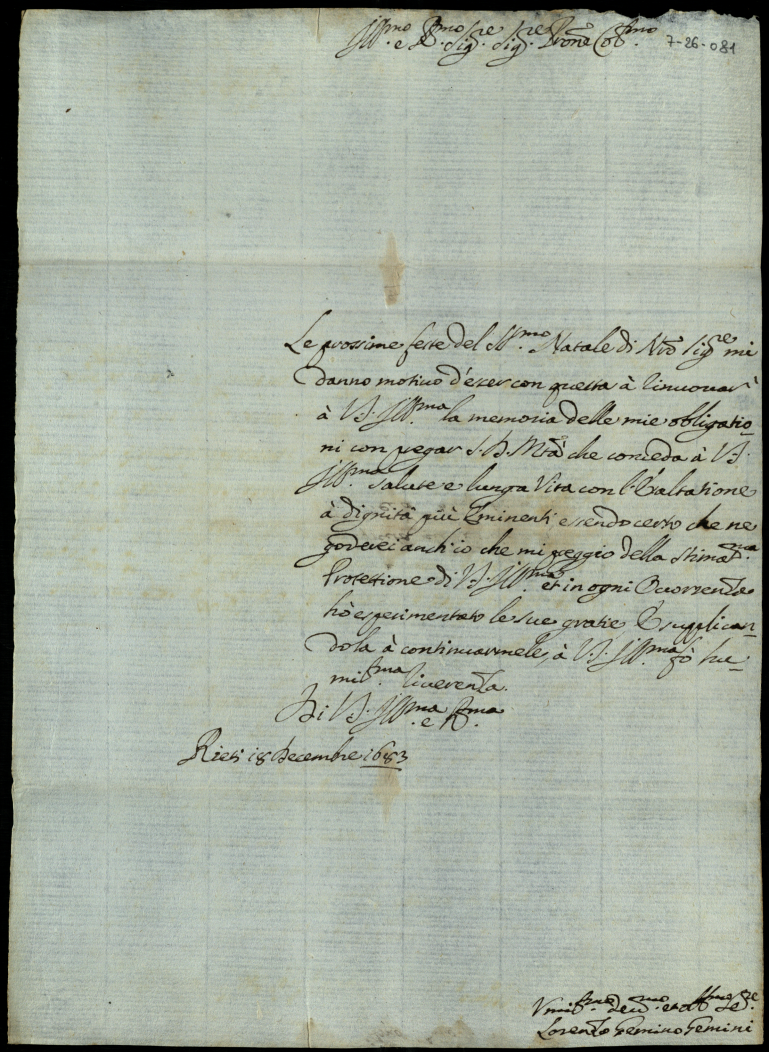 Ill.mo e R.mo Sig.re Sig.re Prone Col.mo 7-26-081
Le prossime feste del SS.mo Natale di Nro Sig.re mi
danno motiuo d'esser con questa à rinuouar
à V.S. Ill.ma la memoria delle mie obligatio-
ni con pregar S.D.Mtà che conceda à V.S.
Ill.ma salute e lunga Vita con l'Esaltatione
à dignità più Eminenti essendo certo che ne
goderei anch'io che mi preggio della stimat.ma
Protettione di V.S. Ill.ma et in ogni Occorrenza
hò esperimentato le sue gratie, E supplican-
dola à continuarmele, à V.S. Ill.ma fò hu-
mil.ma riuerenza.
Di V.S. Ill.ma e R.ma
Rieti 18 Decembre 1683
Vmil.mo deu.mo et obl.mo Se.re
Lorenzo Gemino Gemini